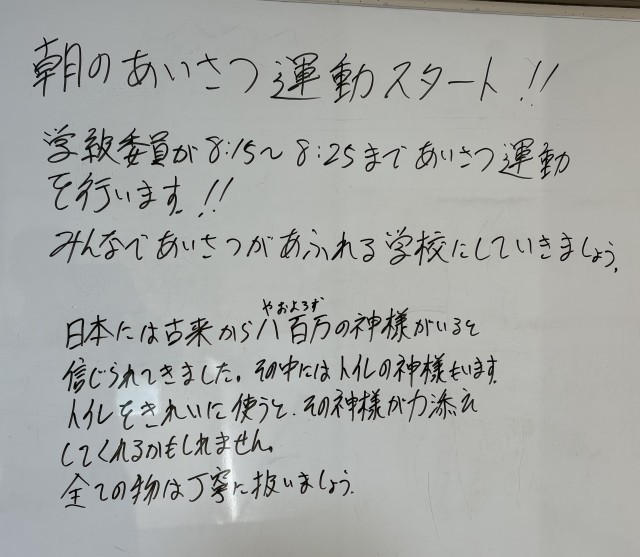 朝のあいさつ運動スタート!!
学級委員が8:15〜8:25まであいさつ運動
を行います!!
みんなであいさつがあふれる学校にしていきましょう。
やおよろず
日本には古来から八百万の神様がいると
信じられてきました。その中にはトイレの神様もいます。
トイレをきれいに使うと、その神様が力添え
してくれるかもしれません。
全ての物は丁寧に扱いましょう。